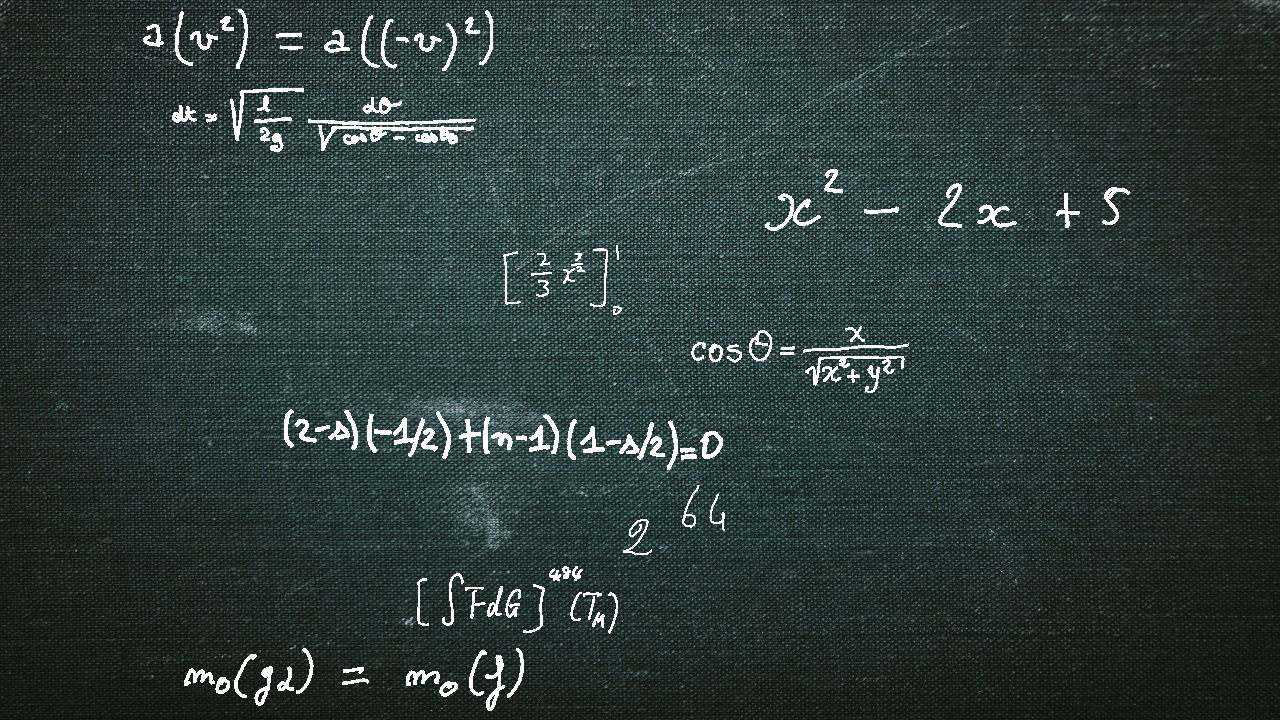 a(v²) = a((-v)²)
dt = √(l/2g) dθ/√(cosθ - cosθ₀)
x² - 2x + 5
[2/3 x^(3/2)]₀¹
cos θ = x/√(x² + y²)
(2-s)(-1/2)+(n-1)(1-s/2)=0
2^64
[∫FdG]^484 (T_M)
m₀(gd) = m₀(f)